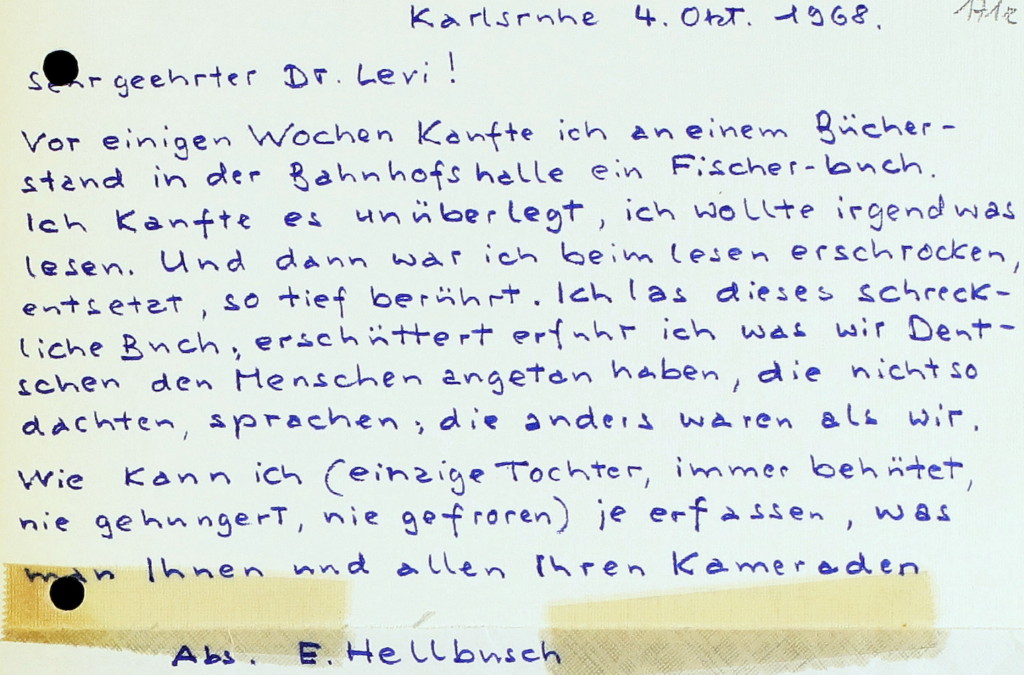 Karlsruhe 4. Okt. 1968.
Sehr geehrter Dr. Levi!
Vor einigen Wochen kaufte ich an einem Bücher-
stand in der Bahnhofshalle ein Fischer-buch.
Ich kaufte es unüberlegt, ich wollte irgendwas
lesen. Und dann war ich beim lesen erschrocken,
entsetzt, so tief berührt. Ich las dieses schreck-
liche Buch, erschüttert erfuhr ich was wir Deut-
schen den Menschen angetan haben, die nicht so
dachten, sprachen, die anders waren als wir.
Wie kann ich (einzige Tochter, immer behütet,
nie gehungert, nie gefroren) je erfassen, was
man Ihnen und allen Ihren Kameraden
Abs. E. Hellbusch